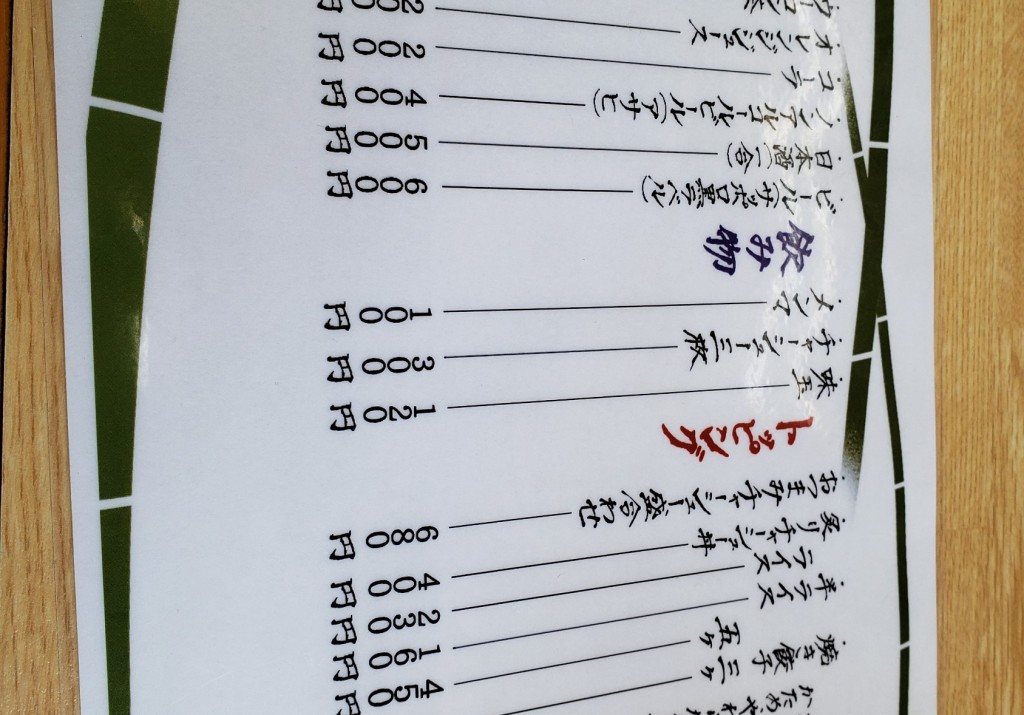 焼き餃子 三ヶ
五ヶ 450円
半ライス 160円
ライス 230円
炙りチャーシュー丼 400円
おつまみチャーシュー盛合わせ 680円
トッピング
味玉 120円
チャーシュー三枚 300円
メンマ 100円
飲み物
ビール(サッポロ黒ラベル) 600円
日本酒(一合) 500円
ノンアルコールビール(アサヒ) 400円
コーラ 200円
オレンジジュース 200円